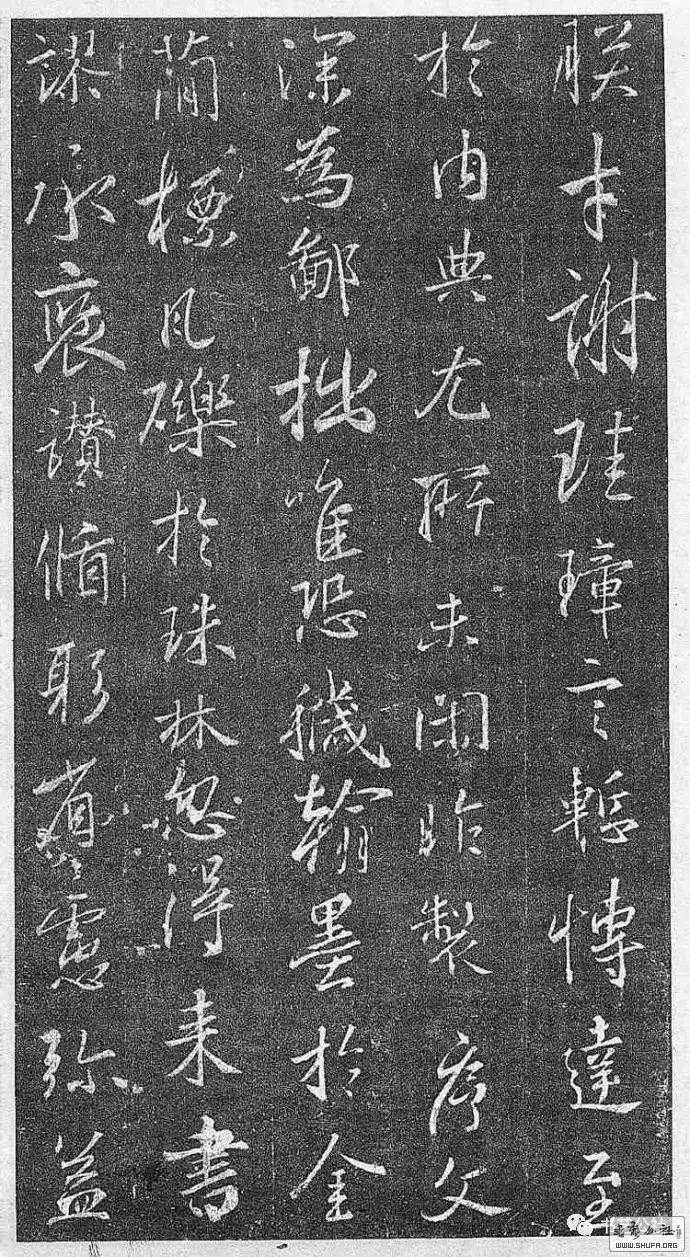 朕才謝珪璋言慙博達至
於內典尤所未閑昨製序文
深為鄙拙唯恐穢翰墨於金
簡標瓦礫於珠林忽得来書
謬承褒讃循躬省慮弥益
WWW.SHUFA.ORG